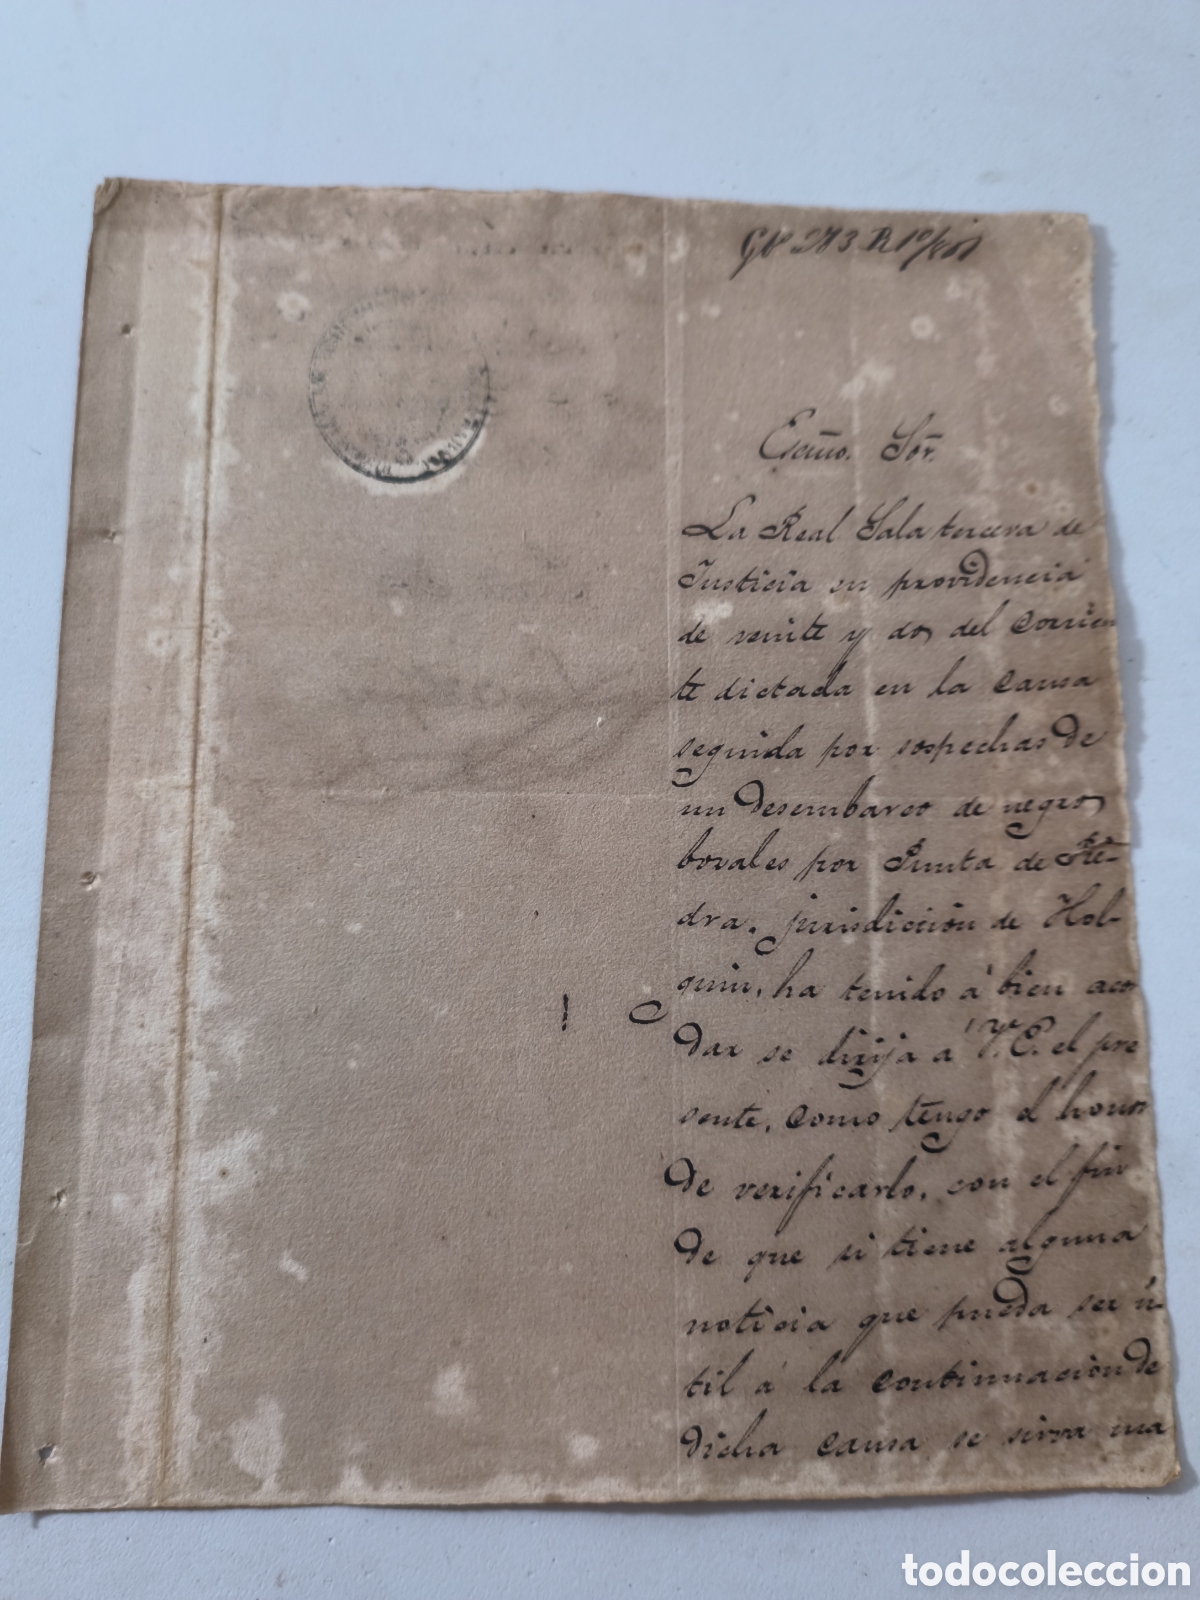 Excmo. Sór.
La Real Sala tercera de
Justicia en providencia
de veinte y dos del corrien
te dictada en la causa
seguida por sospechas de
un desembarco de negros
bozales por Punta de Pie-
dra, jurisdiccion de Hol-
guin, ha tenido á bien acor
dar se dirija a V. E. el pre
sente, como tengo el honor
de verificarlo, con el fin
de que si tiene alguna
noticia que pueda ser ú-
til á la continuacion de
dicha causa se sirva ma
todocoleccion